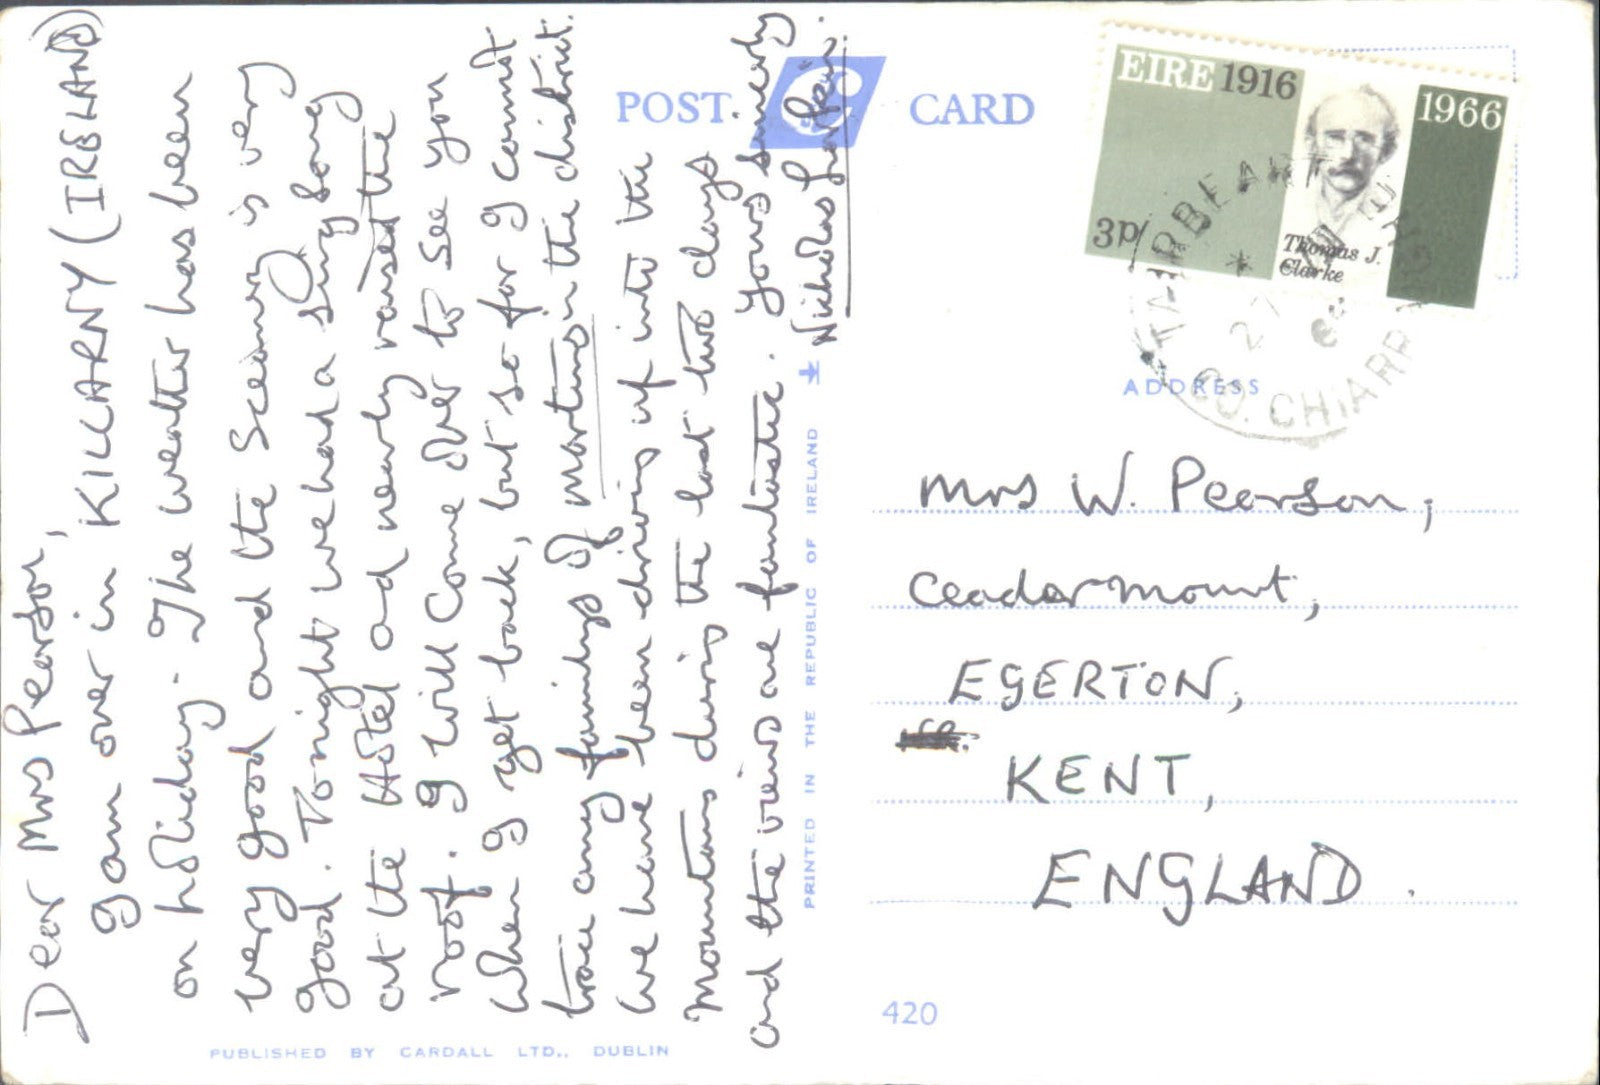 Dear Mrs Pearson,
I am over in KILLARNY (IRELAND)
on holiday. The weather has been
very good and the Scenery is very
good. Tonight we had a sing song
at the Hotel and nearly raised the
roof. I will Come over to see you
when I get back, but so far I cannot
trace any familys of Martins in the district.
We have been driving up into the
Mountains during the last two days
and the views are fantastic. Yours sincerely
Nicholas
POST CARD
EIRE 1916 1966
3p
Thomas J.
Clarke
CO. CHIARRAI
ADDRESS
Mrs W. Pearson,
Ceadarmount,
EGERTON,
KENT,
ENGLAND.
PRINTED IN THE REPUBLIC OF IRELAND
420
PUBLISHED BY CARDALL LTD., DUBLIN